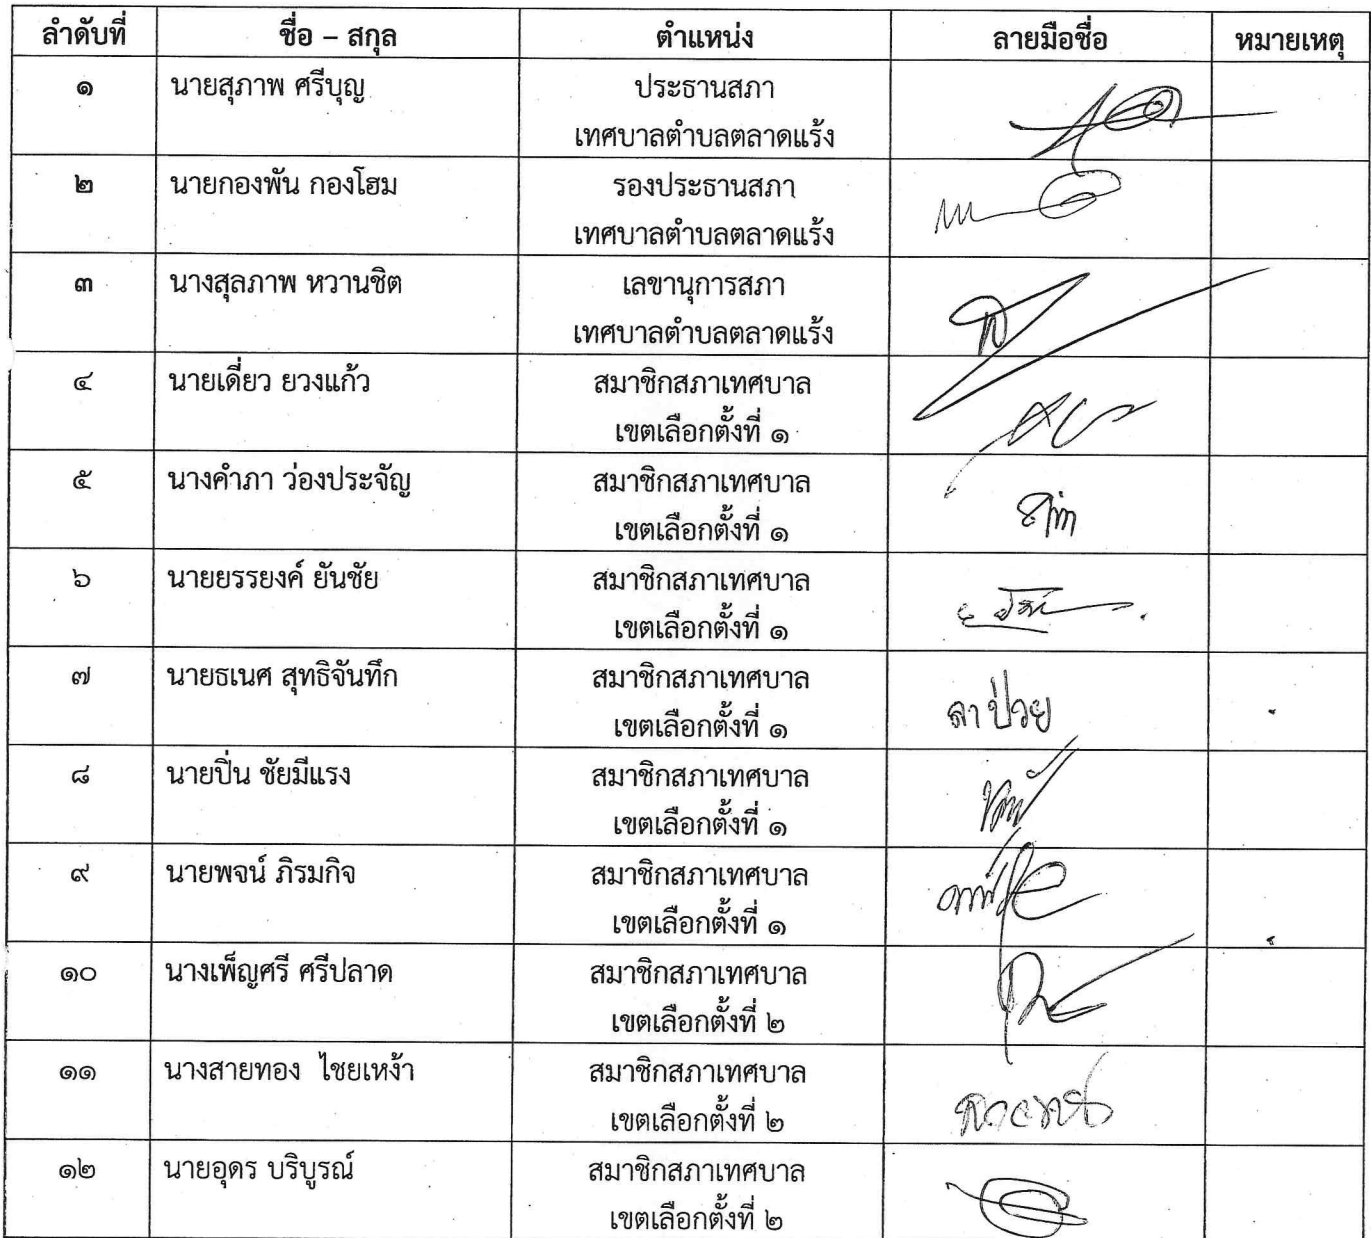 ลำดับที่ ชื่อ – สกุล ตำแหน่ง ลายมือชื่อ หมายเหตุ
๑ นายสุภาพ ศรีบุญ ประธานสภา
เทศบาลตำบลตลาดแร้ง
๒ นายกองพัน กองโฮม รองประธานสภา
เทศบาลตำบลตลาดแร้ง
๓ นางสุลภาพ หวานชิต เลขานุการสภา
เทศบาลตำบลตลาดแร้ง
๔ นายเดี่ยว ยวงแก้ว สมาชิกสภาเทศบาล
เขตเลือกตั้งที่ ๑
๕ นางคำภา ว่องประจัญ สมาชิกสภาเทศบาล
เขตเลือกตั้งที่ ๑
๖ นายยรรยงค์ ยันชัย สมาชิกสภาเทศบาล
เขตเลือกตั้งที่ ๑
๗ นายธเนศ สุทธิจันทึก สมาชิกสภาเทศบาล ลาป่วย
เขตเลือกตั้งที่ ๑
๘ นายปิ่น ชัยมีแรง สมาชิกสภาเทศบาล
เขตเลือกตั้งที่ ๑
๙ นายพจน์ ภิรมกิจ สมาชิกสภาเทศบาล
เขตเลือกตั้งที่ ๑
๑๐ นางเพ็ญศรี ศรีปลาด สมาชิกสภาเทศบาล
เขตเลือกตั้งที่ ๒
๑๑ นางสายทอง ไชยเหง้า สมาชิกสภาเทศบาล
เขตเลือกตั้งที่ ๒
๑๒ นายอุดร บริบูรณ์ สมาชิกสภาเทศบาล
เขตเลือกตั้งที่ ๒